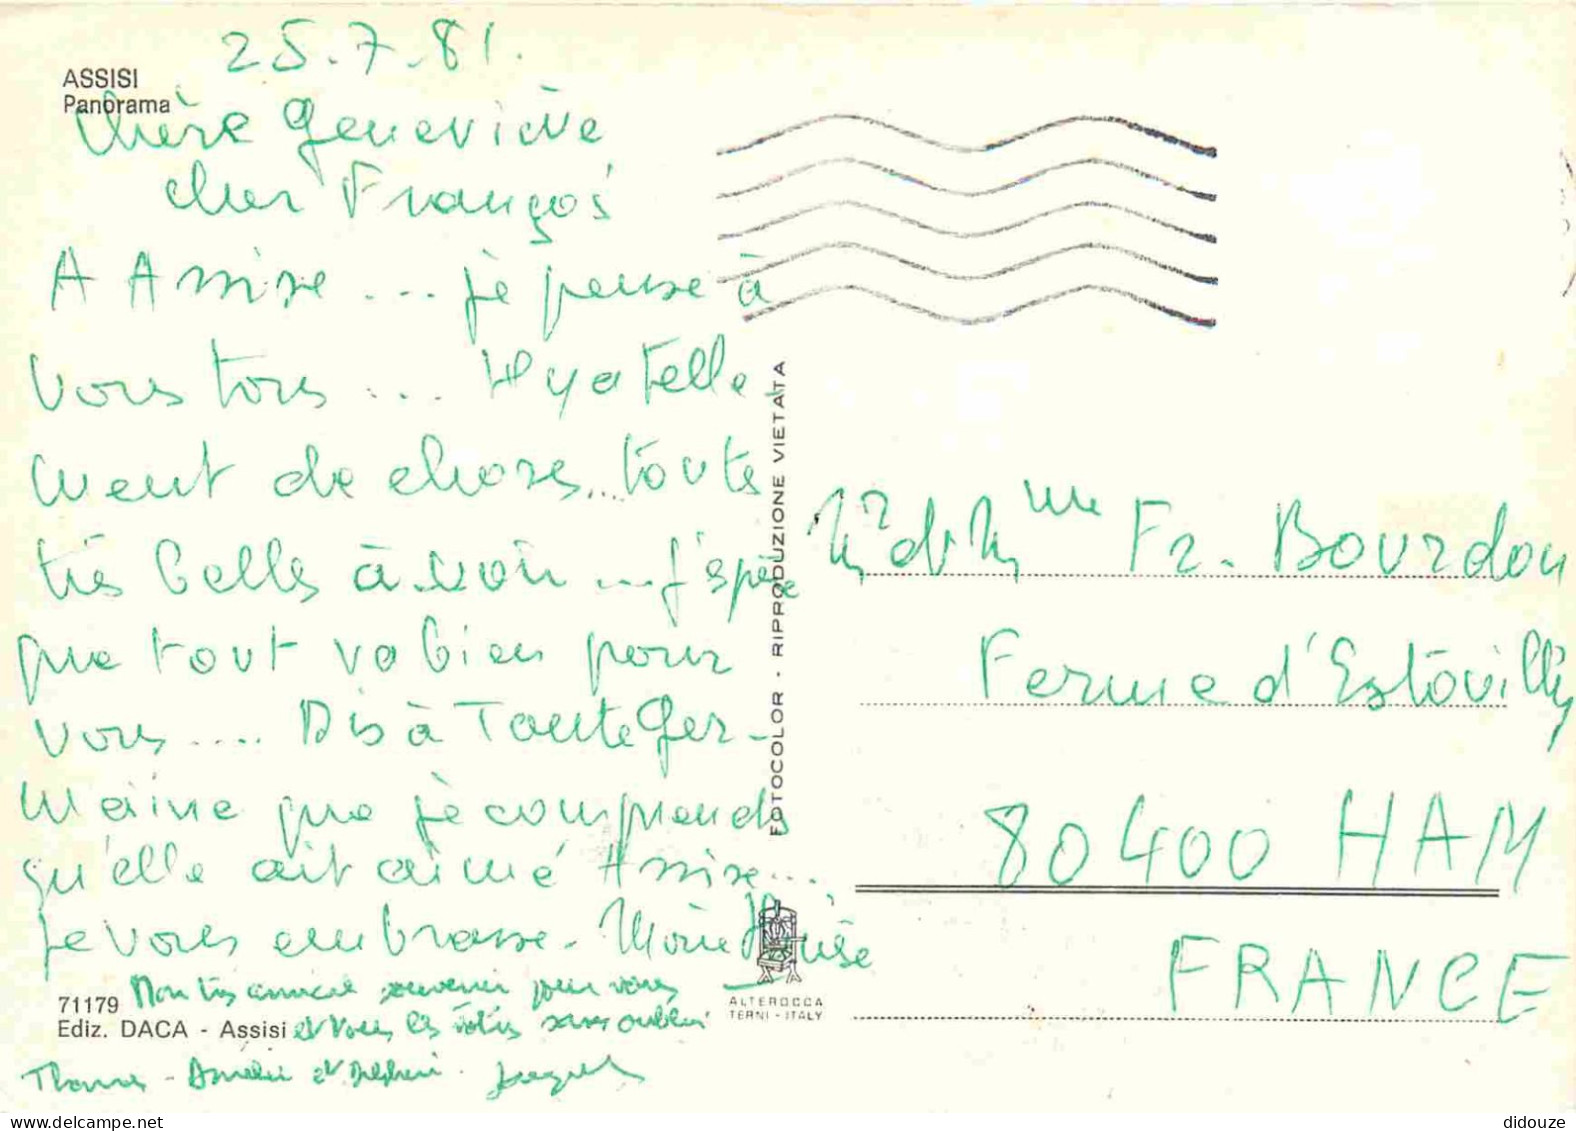 25.7.81.
ASSISI
Panorama
Chère Geneviève
cher François
A Assise ... je pense à
vous tous ... Il y a telle
ment de choses... toutes
très belles à voir ... j'espère
que tout va bien pour
vous .... Dis à Tante Ger-
maine que je comprends
qu'elle ait aimé Assise ...
je vous embrasse - Marie Louise
Mon très amical souvenir pour vous
et tous les vôtres sans oublier
Thomas - Amélie et Delphine.
71179
Ediz. DACA - Assisi
FOTOCOLOR - RIPRODUZIONE VIETATA
ALTEROCCA
TERNI - ITALY
Mr et Mme Fr. Bourdon
Ferme d'Estouilly
80400 HAM
FRANCE
didouze